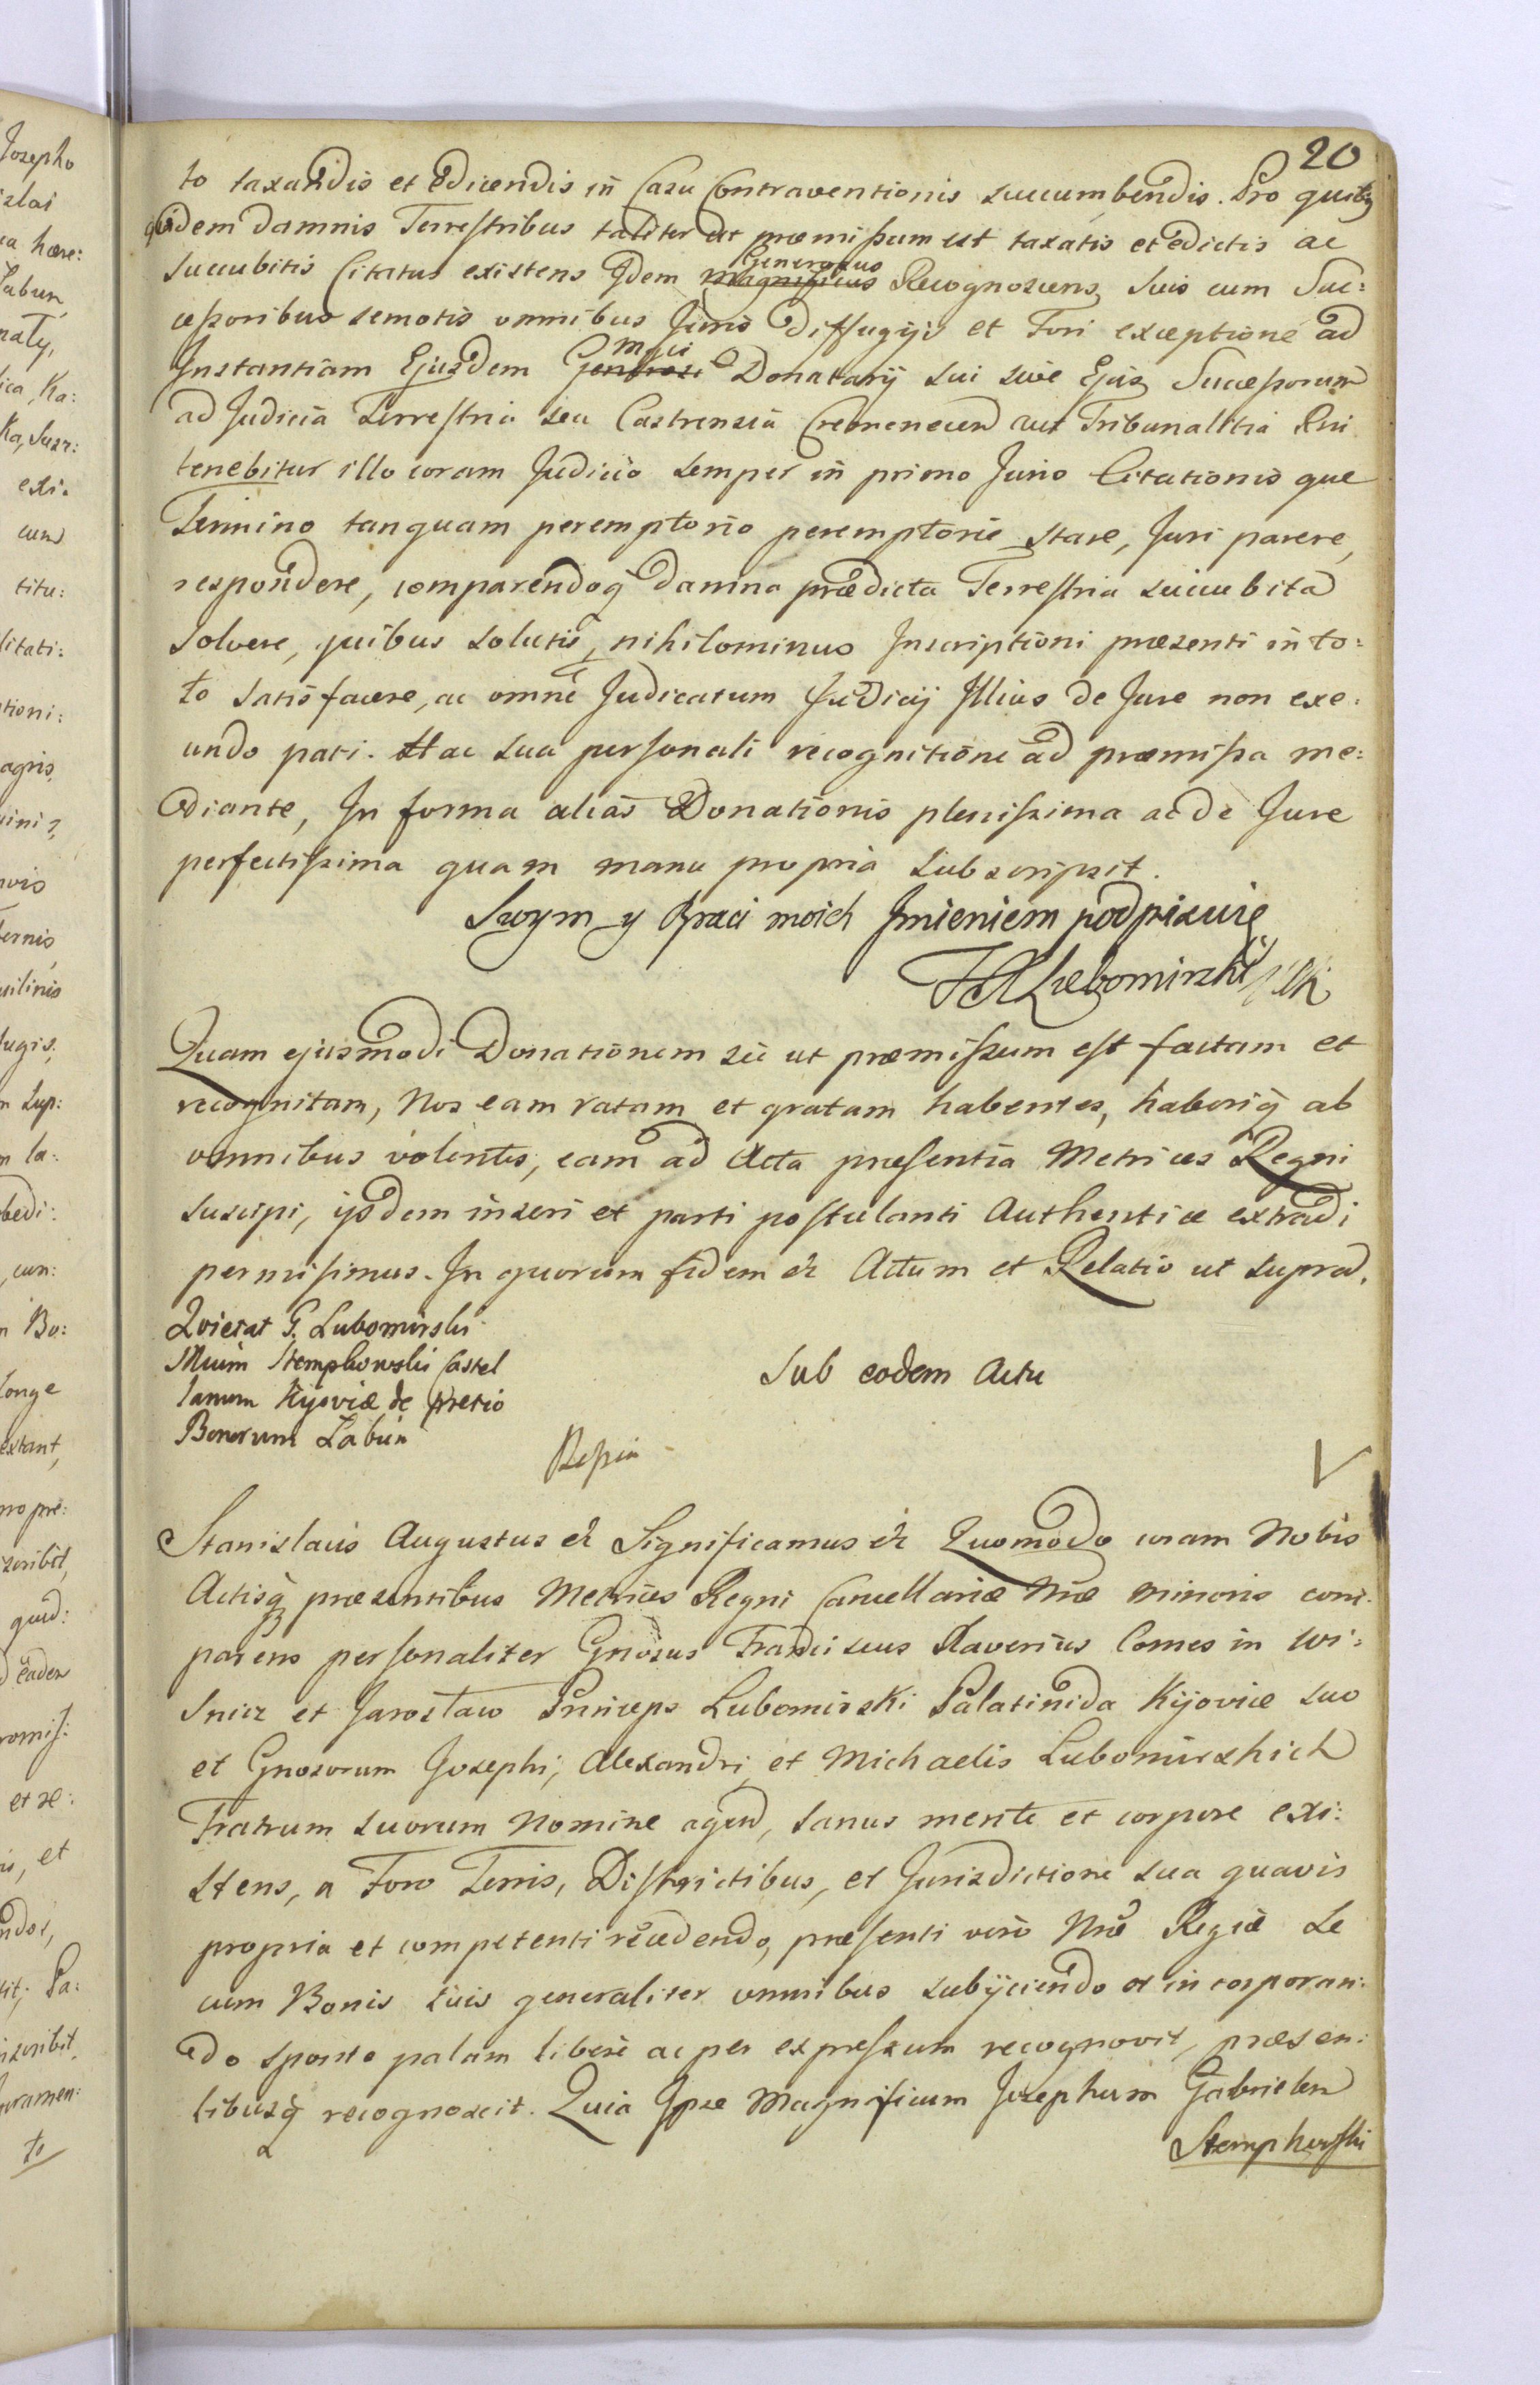 20
to taxandis et edicendis in Casu Contraventionis succumbendis. Pro quibq
quidem damnis Terrestribus taliter ut præmissum est taxatis et edictis ac
succubitis Citatus existens Idem Magnificus Generosus Recognoscens, suis cum Suc:
cessoribus semotis omnibus Juris diffugijs et Fori exceptione ad
Instantiam Ejusdem Generosi Mfici Donatarij sui sive Ejus Successorum
ad Judicia Terrestria seu Castrensia Cremenecen aut Tribunalitia Rni
tenebitur illo coram Judicio semper in primo Juris Citationis que
Termino tanquam peremptorio peremptorie stare, Juri parere,
respondere, comparendoq damna prædicta Terrestria succubita
solvere, quibus solutis, nihilominus Inscriptioni præsenti in to:
to satisfacere, ac omne Judicatum Judicij Illius de Jure non exe:
undo pati. Hac sua personali recognitione ad præmissa me:
diante, In forma alias Donationis plenissima ac de Jure
perfectissima quam manu propria subscripsit.
Swym y Braci moich Jmieniem podpisuię
FX Lubomirski
Quam ejusmodi Donationem sic ut præmissum est factam et
recognitam, Nos eam ratam et gratam habentes, haberiq ab
omnibus volentes, eam ad Acta præsentia Metrices Regni
suscipi, ijsdem inseri et parti postulanti Authentice extradi
permisimus. In quorum fidem &c Actum et Relatio ut supra.
Quietat G. Lubomirski
Mcum Stempkowski Castel
lanum Kijoviæ de pretio
Bonorum Łabuń
Sub eodem Actu
Stanislaus Augustus &c Significamus &c Quomodo coram Nobis
Actisq præsentibus Metrices Regni Cancellariæ Nræ Minoris com:
parens personaliter Gnosus Franciscus Xaverius Comes in Wi:
snicz et Jarosław Princeps Lubomirski Palatinida Kijoviæ suo
et Gnosorum Josephi, Alexandri et Michaelis Lubomirskich
Fratrum suorum Nomine agen, sanus mente et corpore exi:
stens, a Foro Terris, Districtibus, et Jurisdictione sua quavis
propria et competenti recedendo, præsenti vero Nræ Regiæ se
cum Bonis suis generaliter omnibus subijciendo et incorporan:
do sponte palam libere ac per expressum recognovit, præsen:
tibusq recognoscit. Quia Ipse Magnificum Josephum Gabrielem
Stempkowski